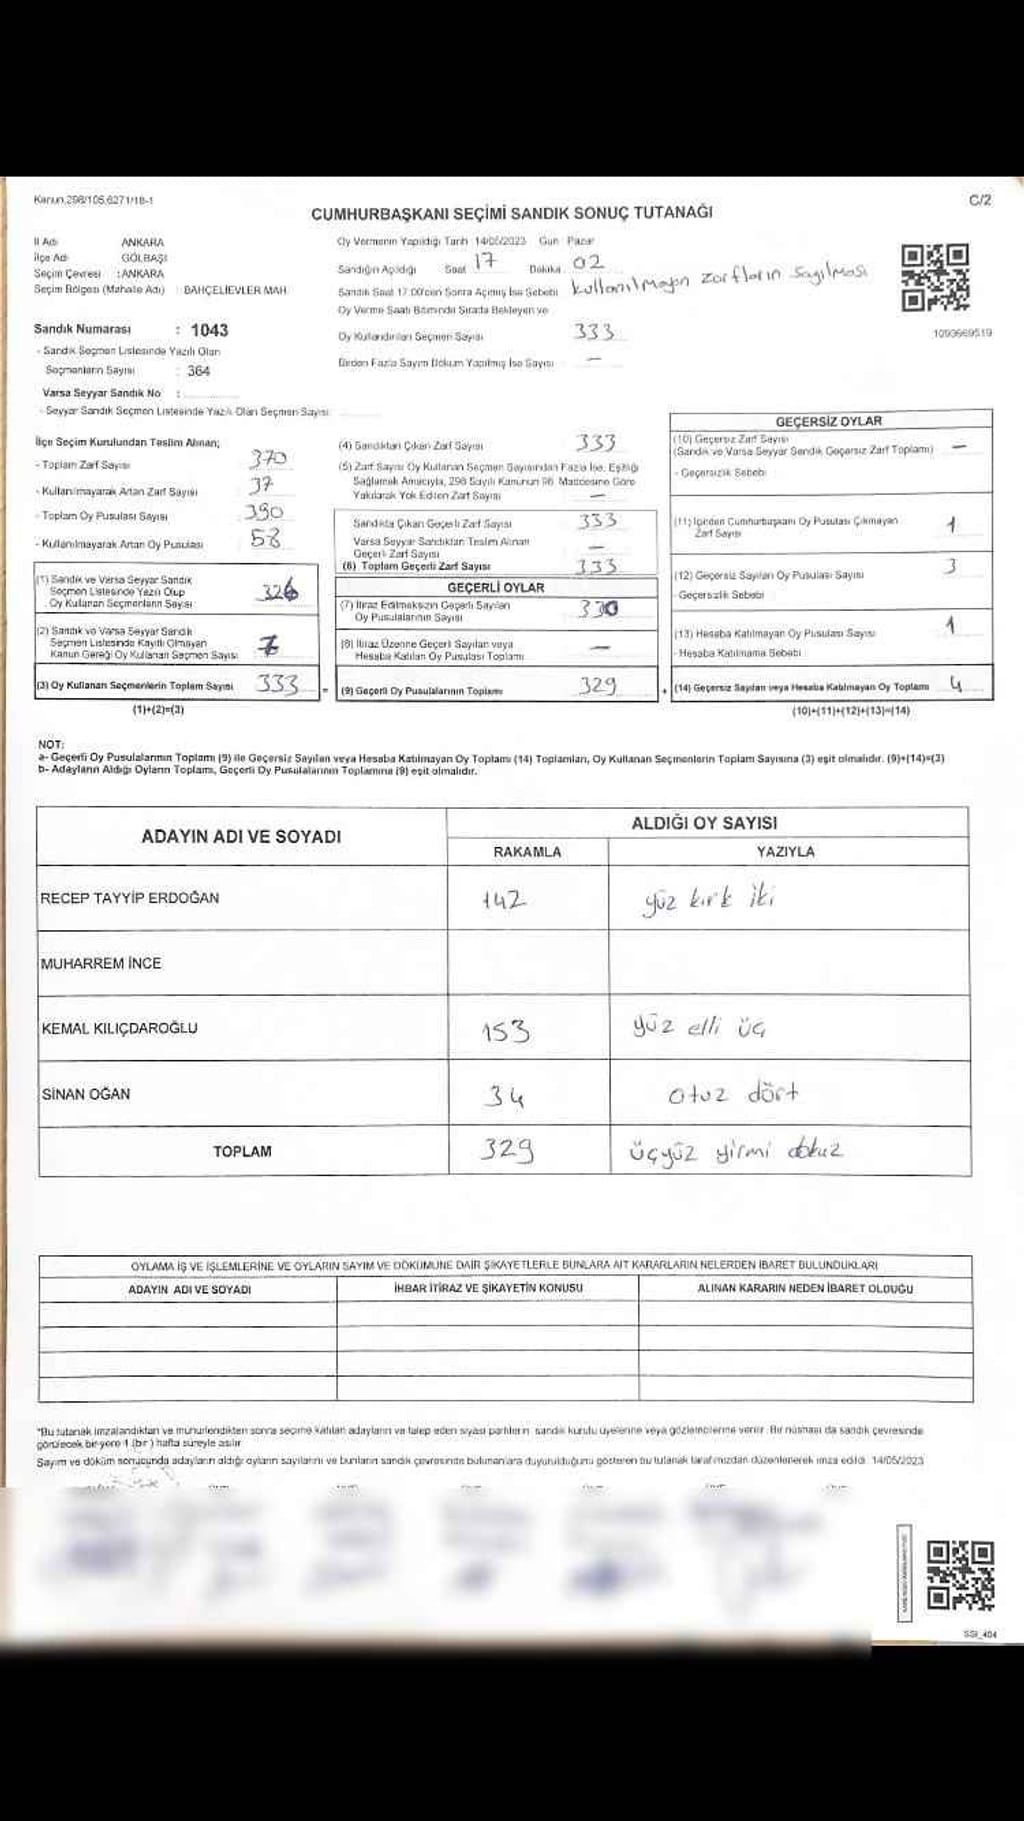 Kanun.298/105,6271/18-1
C/2
CUMHURBAŞKANI SEÇİMİ SANDIK SONUÇ TUTANAĞI
İl Adı ANKARA
İlçe Adı GÖLBAŞI
Seçim Çevresi : ANKARA
Seçim Bölgesi (Mahalle Adı) : BAHÇELİEVLER MAH.
Sandık Numarası : 1043
- Sandık Seçmen Listesinde Yazılı Olan
Seçmenlerin Sayısı : 364
Varsa Seyyar Sandık No :
- Seyyar Sandık Seçmen Listesinde Yazılı Olan Seçmen Sayısı
Oy Vermenin Yapıldığı Tarih 14/05/2023 Gün Pazar
Sandığın Açıldığı Saat 17 Dakika 02
Sandık Saat 17:00'den Sonra Açılmış İse Sebebi kullanılmayan zarfların sayılması
Oy Verme Saati Bitiminde Sırada Bekleyen ve
Oy Kullandırılan Seçmen Sayısı 333
Birden Fazla Sayım Döküm Yapılmış İse Sayısı —
1093669519
İlçe Seçim Kurulundan Teslim Alınan;
- Toplam Zarf Sayısı 370
- Kullanılmayarak Artan Zarf Sayısı 37
- Toplam Oy Pusulası Sayısı 390
- Kullanılmayarak Artan Oy Pusulası 58
(1) Sandık ve Varsa Seyyar Sandık
Seçmen Listesinde Yazılı Olup
Oy Kullanan Seçmenlerin Sayısı 326
(2) Sandık ve Varsa Seyyar Sandık
Seçmen Listesinde Kayıtlı Olmayan
Kanun Gereği Oy Kullanan Seçmen Sayısı 7
(3) Oy Kullanan Seçmenlerin Toplam Sayısı 333 =
(1)+(2)=(3)
(4) Sandıktan Çıkan Zarf Sayısı 333
(5) Zarf Sayısı Oy Kullanan Seçmen Sayısından Fazla İse, Eşitliği
Sağlamak Amacıyla, 298 Sayılı Kanunun 98. Maddesine Göre
Yakılarak Yok Edilen Zarf Sayısı —
Sandıkta Çıkan Geçerli Zarf Sayısı 333
Varsa Seyyar Sandıktan Teslim Alınan
Geçerli Zarf Sayısı —
(6) Toplam Geçerli Zarf Sayısı 333
GEÇERLİ OYLAR
(7) İtiraz Edilmeksizin Geçerli Sayılan
Oy Pusulalarının Sayısı 330
(8) İtiraz Üzerine Geçerli Sayılan veya
Hesaba Katılan Oy Pusulası Toplamı —
(9) Geçerli Oy Pusulalarının Toplamı 329 +
GEÇERSİZ OYLAR
(10) Geçersiz Zarf Sayısı
(Sandık ve Varsa Seyyar Sandık Geçersiz Zarf Toplamı) —
- Geçersizlik Sebebi
(11) İçinden Cumhurbaşkanı Oy Pusulası Çıkmayan
Zarf Sayısı 1
(12) Geçersiz Sayılan Oy Pusulası Sayısı 3
- Geçersizlik Sebebi
(13) Hesaba Katılmayan Oy Pusulası Sayısı 1
- Hesaba Katılmama Sebebi
(14) Geçersiz Sayılan veya Hesaba Katılmayan Oy Toplamı 4
(10)+(11)+(12)+(13)=(14)
NOT:
a- Geçerli Oy Pusulalarının Toplamı (9) ile Geçersiz Sayılan veya Hesaba Katılmayan Oy Toplamı (14) Toplamları, Oy Kullanan Seçmenlerin Toplam Sayısına (3) eşit olmalıdır. (9)+(14)=(3)
b- Adayların Aldığı Oyların Toplamı, Geçerli Oy Pusulalarının Toplamına (9) eşit olmalıdır.
ADAYIN ADI VE SOYADI
ALDIĞI OY SAYISI
RAKAMLA YAZIYLA
RECEP TAYYİP ERDOĞAN 142 yüz kırk iki
MUHARREM İNCE
KEMAL KILIÇDAROĞLU 153 yüz elli üç
SİNAN OĞAN 34 otuz dört
TOPLAM 329 üçyüz yirmi dokuz
OYLAMA İŞ VE İŞLEMLERİNE VE OYLARIN SAYIM VE DÖKÜMÜNE DAİR ŞİKAYETLERLE BUNLARA AİT KARARLARIN NELERDEN İBARET BULUNDUKLARI
ADAYIN ADI VE SOYADI İHBAR İTİRAZ VE ŞİKAYETİN KONUSU ALINAN KARARIN NEDEN İBARET OLDUĞU
*Bu tutanak imzalandıktan ve mühürlendikten sonra seçime katılan adayların ve talep eden siyasi partilerin sandık kurulu üyelerine veya gözlemcilerine verilir. Bir nüshası da sandık çevresinde
görülecek bir yere 1 (bir) hafta süreyle asılır.
Sayım ve döküm sonucunda adayların aldığı oyların sayılarını ve bunların sandık çevresinde bulunanlara duyurulduğunu gösteren bu tutanak tarafımızdan düzenlenerek imza edildi. 14/05/2023
SSI_404